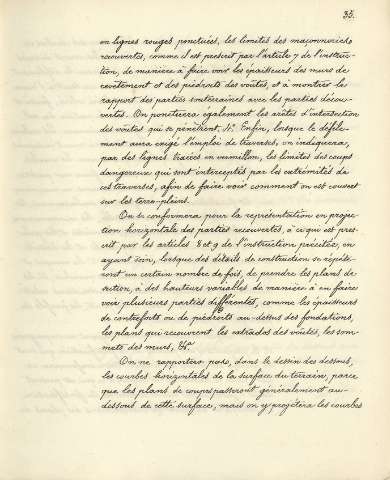 33.
en lignes rouges ponctuées, les limites des maçonneries
recouvertes, comme il est prescrit par l'article 7 de l'instruc-
tion, de manière à faire voir les épaisseurs des murs de
revêtement et des piédroits des voûtes, et à montrer les
rapport des parties souterraines avec les parties décou-
vertes. On ponctuera également les arêtes d'intersection
des voûtes qui se pénètrent. Enfin, lorsque le défile-
ment aura exigé l'emploi de traverses, on indiquera,
par des lignes tracées en vermillon, les limites des coups
dangereux qui sont interceptés par les extrémités de
ces traverses, afin de faire voir comment on est couvert
sur les terre-pleins.
On se conformera pour la représentation en projec-
tion horizontale des parties recouvertes, à ce qui est pres-
crit par les articles 8 et 9 de l'instruction précitée, en
ayant soin, lorsque des détails de construction se répéte-
ront un certain nombre de fois, de prendre les plans de
section, à des hauteurs variables de manière à en faire
voir plusieurs parties différentes, comme les épaisseurs
de contreforts ou de piédroits au-dessus des fondations,
les plans qui recouvrent les extrados des voûtes, les som-
mets des murs, &a
On ne rapportera pas, dans le dessin des dessus,
les courbes horizontales de la surface du terrain, parce
que les plans de coupe passeront généralement au-
dessous de cette surface, mais on y projètera les courbes